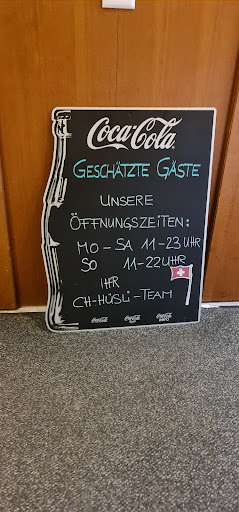 Coca-Cola
GESCHÄTZTE GÄSTE
UNSERE
ÖFFNUNGSZEITEN:
MO - SA 11-23 UHR
SO 11-22 UHR
IHR
CH-HÜSLI-TEAM
Coca-Cola Coca-Cola Coca-Cola